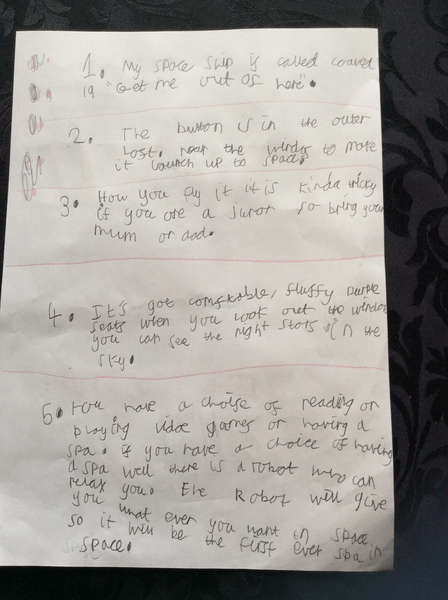 1. My space ship is called covid
19 "Get me out of here".
2. The button is in the outer
near the window to make
it launch up to space.
3. How you fly it it is kinda tricky
if you are a junor so bring your
mum or dad.
4. It's got comfortable, fluffy purple
seats when you look out the window
you can see the night stars in the
sky.
5. You have a choise of reading or
playing vidoe games or having a
spa. if you have a choice of having
a spa well there is a robot who can
relax you. The Robot will give
you what ever you want in space
so it will be the first ever spa in
space.